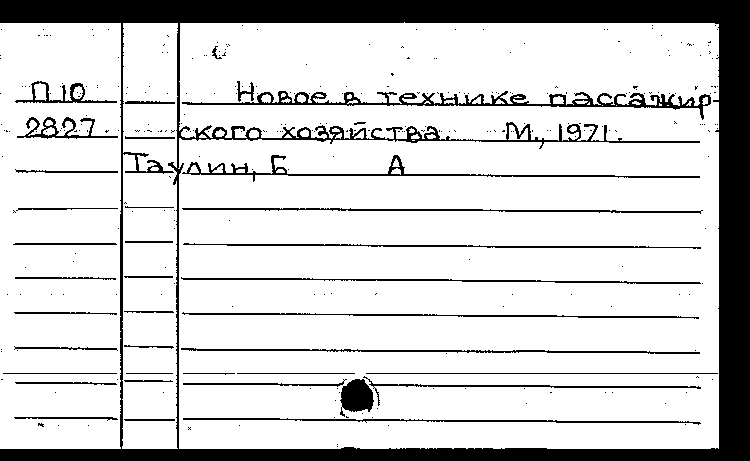 П10 Новое в технике пассажир-
2827 ского хозяйства. М., 1971.
Таулин, Б А